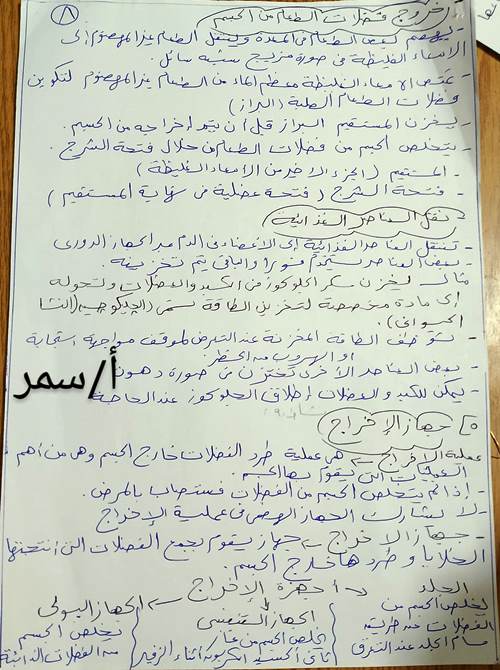 ٨
خروج فضلات الطعام من الجسم
- يهضم بعض الطعام فى المعدة وينتقل الطعام غير المهضوم إلى
الأمعاء الغليظة فى صورة مزيج شبه سائل.
- تمتص الأمعاء الغليظة معظم الماء من الطعام غير المهضوم لتكوين
فضلات الطعام الصلبة (البراز)
- يخزن المستقيم البراز قبل أن يتم إخراجه من الجسم.
- يتخلص الجسم من فضلات الطعام من خلال فتحة الشرج.
- المستقيم (الجزء الأخير من الأمعاء الغليظة)
- فتحة الشرج (فتحة عضلية فى نهاية المستقيم)
نقل العناصر الغذائية
- تنتقل العناصر الغذائية إلى الأعضاء فى الدم عبر الجهاز الدورى
- بعض العناصر تستخدم فورا والباقى يتم تخزينه.
مثال يخزن سكر الجلوكوز فى الكبد والعضلات وتحوله
إلى مادة مخصصة لتخزين الطاقة تسمى (الجليكوجين) (النشا
الحيوانى).
- توظف الطاقة المخزنة عند التعرض لموقف مواجهة استجابة
او الهروب من الخطر.
- بعض العناصر الأخرى تختزن فى صورة دهون
أ/سمر
- يمكن للكبد والعضلات إطلاق الجلوكوز عند الحاجة
٥] جهاز الإخراج
عملية الإخراج هى عملية طرد الفضلات خارج الجسم وهى من أهم
العمليات التى يقوم بها الجسم.
- إذا لم يتخلص الجسم من الفضلات فستصاب بالمرض.
- لا يشارك الجهاز الهضمى فى عملية الإخراج
- جهاز الإخراج جهاز يقوم بجمع الفضلات التى أنتجتها
الخلايا وطردها خارج الجسم.
أجهزة الإخراج
الجلد
يخلص الجسم من
الفضلات عن طريق
مسام الجلد عند التعرق
الجهاز التنفسى
يخلص الجسم من غاز
ثانى أكسيد الكربون أثناء الزفير
الجهاز البولى
يخلص الجسم
من الفضلات الذائبة